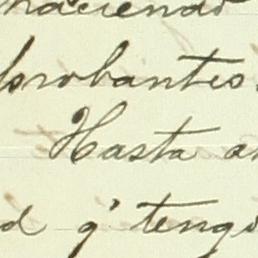 haciendo
probantes.
Hasta a
d q' teng